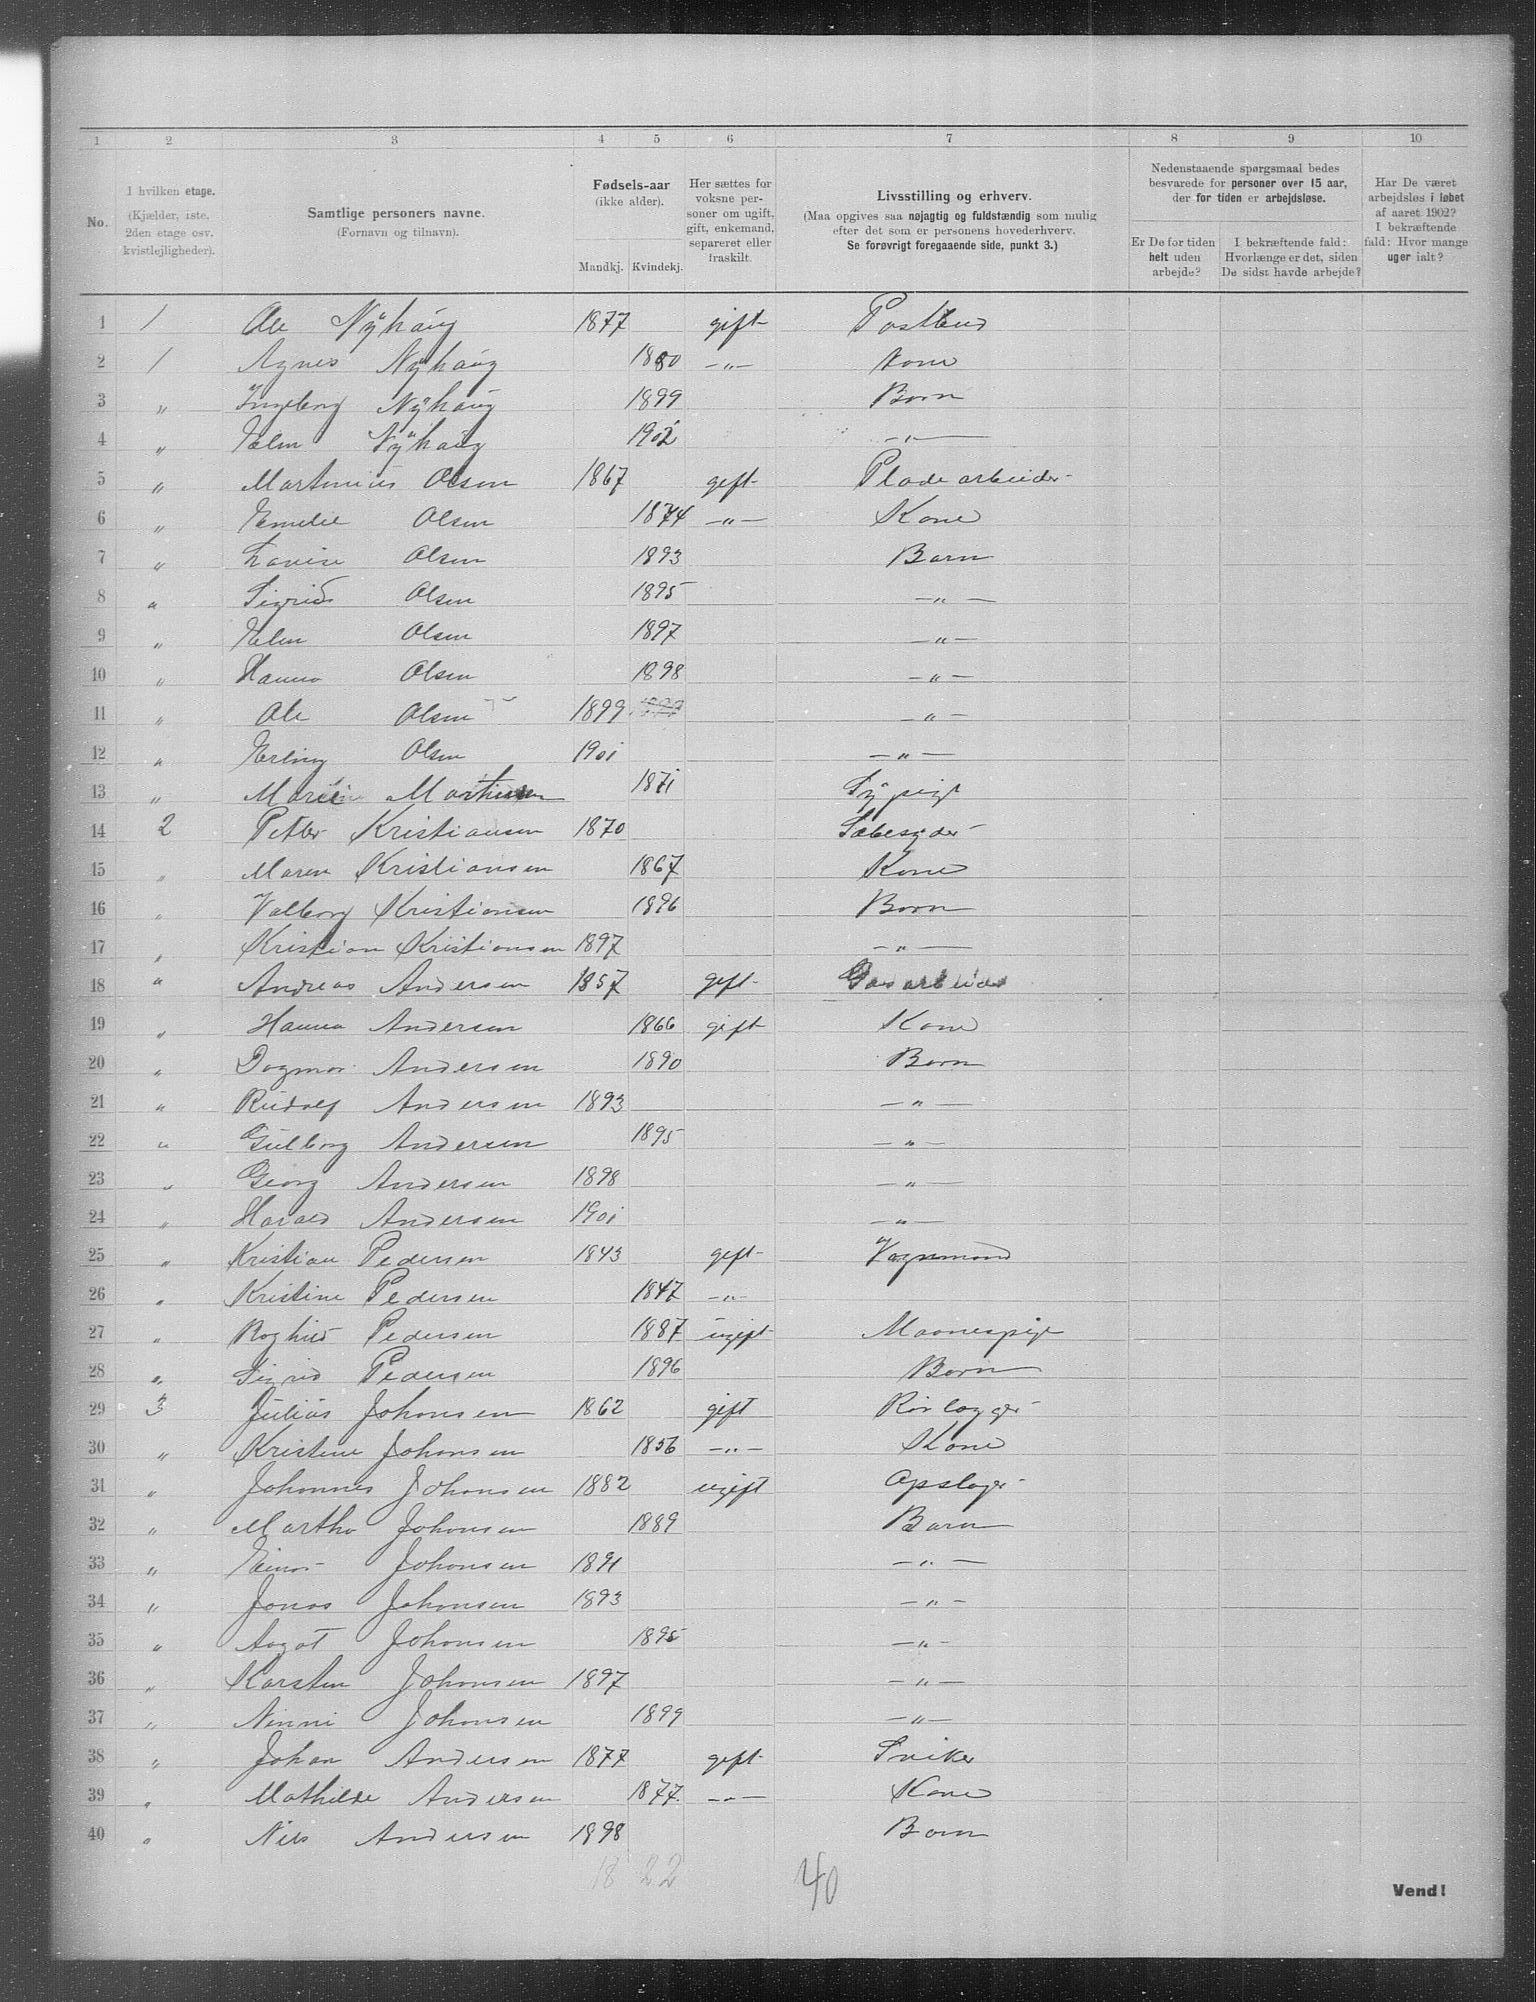 1 2 3 4 5 6 7 8 9 10
No.
I hvilken etage.
(Kjælder, 1ste.
2den etage osv.
kvistlejligheder).
Samtlige personers navne.
(Fornavn og tilnavn).
Fødsels-aar
(ikke alder).
Mandkj. Kvindekj.
Her sættes for
voksne per-
soner om ugift,
gift, enkemand,
separeret eller
fraskilt.
Livsstilling og erhverv.
(Maa opgives saa nøjagtig og fuldstændig som mulig
efter det som er personens hovederhverv.
Se forøvrigt foregaaende side, punkt 3.)
Nedenstaaende spørgsmaal bedes
besvarede for personer over 15 aar,
der for tiden er arbejdsløse.
Er De for tiden
helt uden
arbejde?
I bekræftende fald:
Hvorlænge er det, siden
De sidst havde arbejde?
Har De været
arbejdsløs i løbet
af aaret 1902?
I bekræftende
fald: Hvor mange
uger ialt?
1 1 Ole Nyhaug 1877 gift Postbud
2 1 Agnes Nyhaug 1880 —„— Kone
3 „ Ingeborg Nyhaug 1899 Barn
4 „ Elen Nyhaug 1902 —„—
5 „ Martinius Olsen 1867 gift Pladearbeider
6 „ Emelie Olsen 1874 —„— Kone
7 „ Lovise Olsen 1893 Barn
8 „ Sigrid Olsen 1895 —„—
9 „ Elen Olsen 1897 —„—
10 „ Hanna Olsen 1898 —„—
11 „ Ole Olsen 1899 —„—
12 „ Erling Olsen 1901 —„—
13 „ 1871 Sypige
14 2 Petter Kristiansen 1870 Sæbesyder
15 „ Maren Kristiansen 1867 Kone
16 „ Valborg Kristiansen 1896 Barn
17 „ Kristian Kristiansen 1897 —„—
18 „ Andreas Andersen 1857 gift Gasarbeider
19 „ Hanna Andersen 1866 gift Kone
20 „ Dagmar Andersen 1890 Barn
21 „ Rudolf Andersen 1893 —„—
22 „ Gulborg Andersen 1895 —„—
23 „ Georg Andersen 1898 —„—
24 „ Harald Andersen 1901 —„—
25 „ Kristian Pedersen 1843 gift Vognmand
26 „ Kristine Pedersen 1847 —„—
27 „ Roghild Pedersen 1887 ugift
28 „ Sigrid Pedersen 1896 Barn
29 3 Julius Johansen 1862 gift Rørlægger
30 „ Kristine Johansen 1856 —„— Kone
31 „ Johannes Johansen 1882 ugift Opslager
32 „ Martha Johansen 1889 Barn
33 „ Einar Johansen 1891 —„—
34 „ Jonas Johansen 1893 —„—
35 „ Aagot Johansen 1895 —„—
36 „ Karsten Johansen 1897 —„—
37 „ Ninni Johansen 1899 —„—
38 „ Johan Andersen 1877 gift Sniker
39 „ Mathilde Andersen 1877 —„— Kone
40 „ Nils Andersen 1898 Barn
18 22 40
Vend!